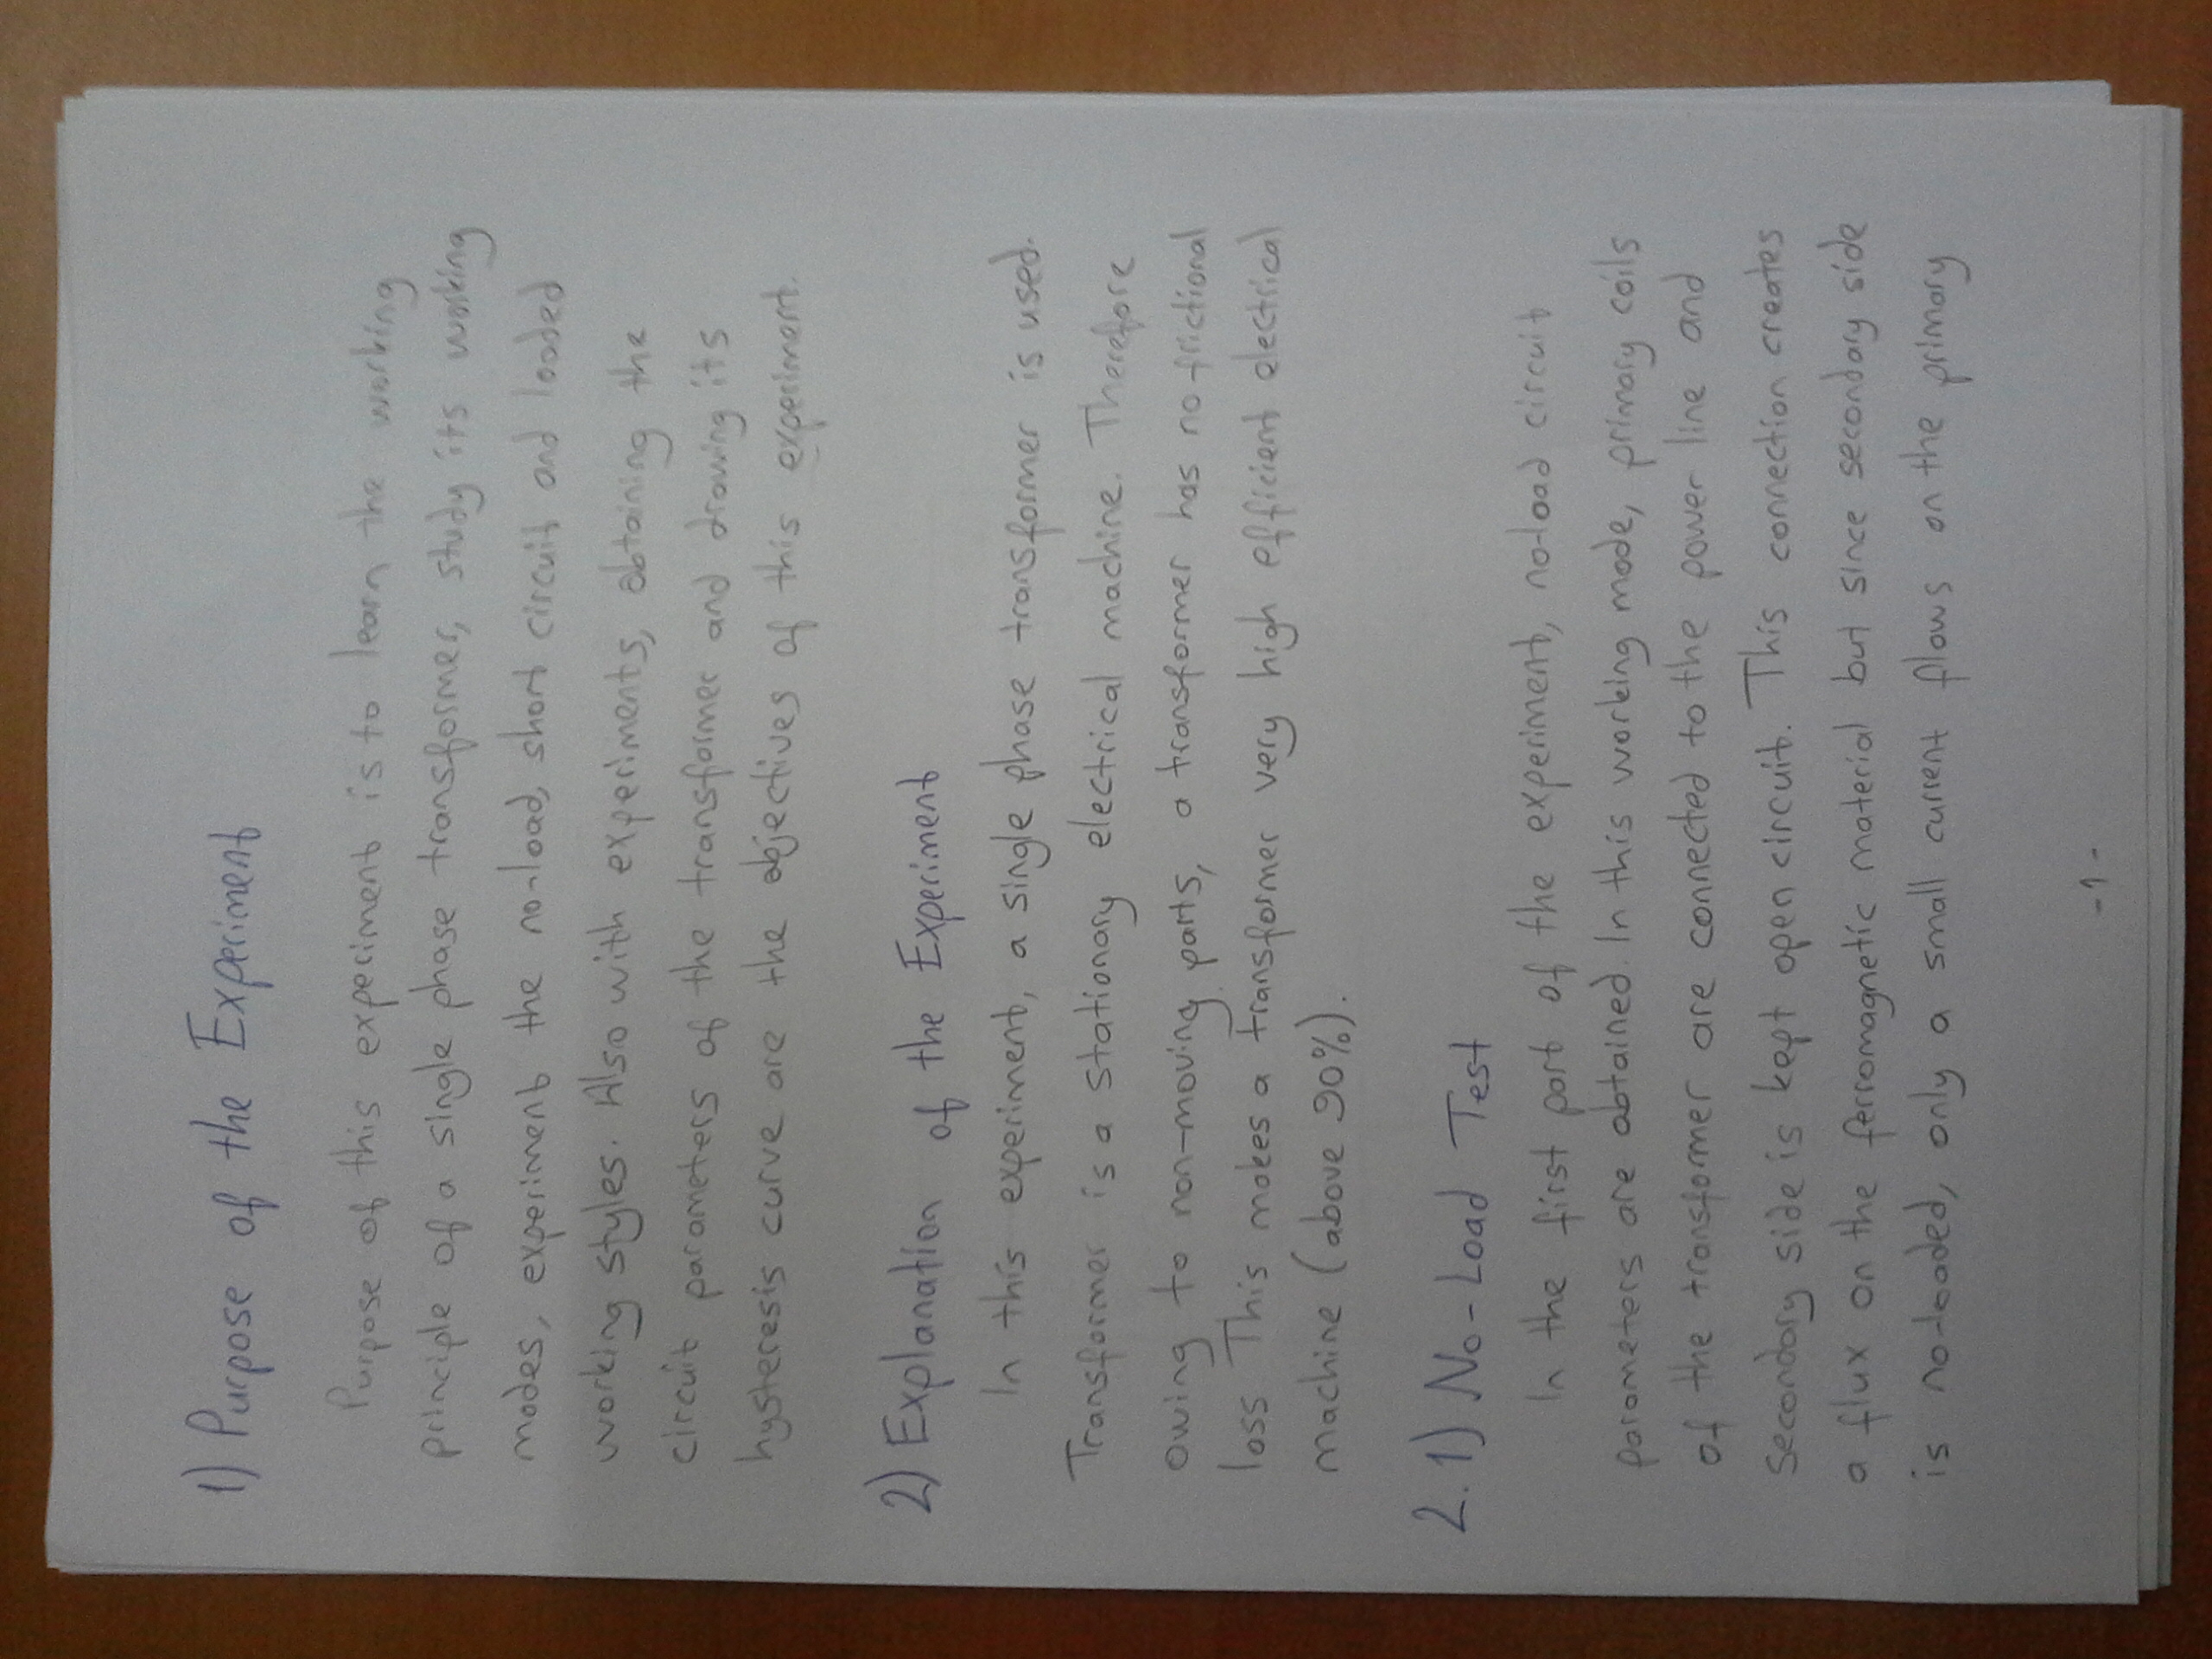 1) Purpose of the Experiment
Purpose of this experiment is to learn the working
principle of a single phase transformer, study its working
modes, experiment the no-load, short circuit and loaded
working styles. Also with experiments, obtaining the
circuit parameters of the transformer and drawing its
hysteresis curve are the objectives of this experiment.
2) Explanation of the Experiment
In this experiment, a single phase transformer is used.
Transformer is a stationary electrical machine. Therefore
owing to non-moving parts, a transformer has no frictional
loss. This makes a transformer very high efficient electrical
machine (above 90%).
2.1) No-Load Test
In the first part of the experiment, no-load circuit
parameters are obtained. In this working mode, primary coils
of the transformer are connected to the power line and
secondary side is kept open circuit. This connection creates
a flux on the ferromagnetic material but since secondary side
is no-loaded, only a small current flows on the primary
-1-